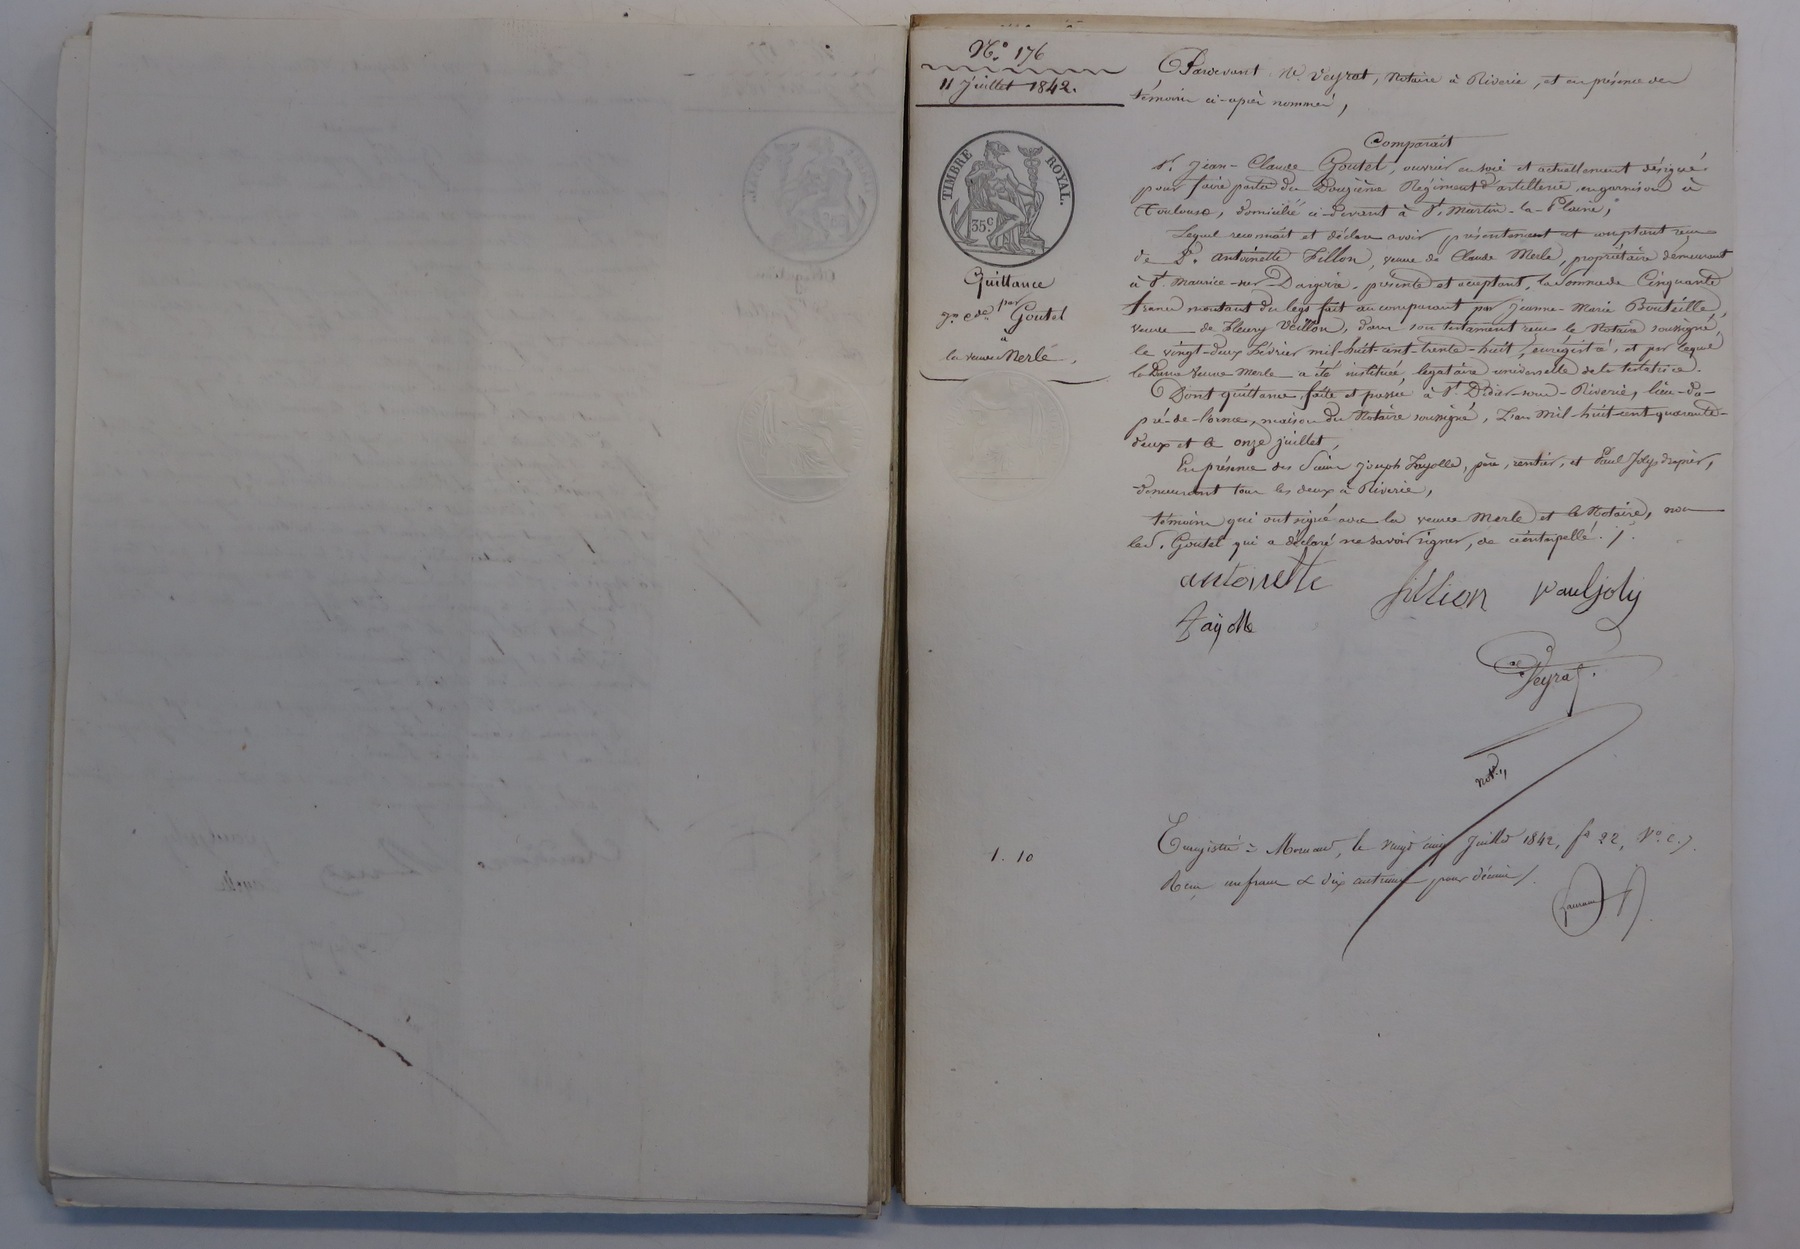 N.° 176
11 Juillet 1842.
TIMBRE ROYAL.
35 c
Quittance
par
Jn. Cde. Goutel
à
la veuve Merle.
Pardevant Me. Veyrat, Notaire à Riverie, et en présence des
témoins ci-après nommés,
Comparait
Sr. Jean-Claude Goutel, ouvrier en soie et actuellement désigné
pour faire partie du Douzième Régiment d'artillerie, en garnison à
Toulouse, domicilié ci-devant à St. Martin-la-Plaine,
Lequel reconnait et déclare avoir présentement et comptant reçu
de De. Antoinette Fillon, veuve de Claude Merle, propriétaire demeurant
à St. Maurice-sur-Dargoire, présente et acceptant, la somme de Cinquante
francs montant du legs fait au comparant par Jeanne-Marie Bouteille,
veuve de Fleury Veillon, dans son testament reçu le Notaire soussigné,
le vingt-deux février mil-huit-cent-trente-huit, enregistré, et par lequel
la Dame veuve Merle a été instituée légataire universelle de la testatrice.
Dont quittance, faite et passée à St. Didier-sous-Riverie, lieu-du-
pré-de-l'orme, maison du Notaire soussigné, L'an Mil-huit-cent-quarante-
deux et le onze juillet,
En présence des Sieurs Joseph Fayolle, père, rentier, et Paul Joly drapier,
demeurant tous les deux à Riverie,
témoins qui ont signé avec la veuve Merle et le Notaire, non
led. Goutel qui a déclaré ne savoir signer, de ce interpellé./.
antoinette fillion Paul joly
fayolle
Veyrat.
Notre
1. 10
Enregistré à Mornant, le vingt cinq Juillet 1842, fo 22, Vo. c. 7.
Reçu un franc & dix centimes pour décime /.